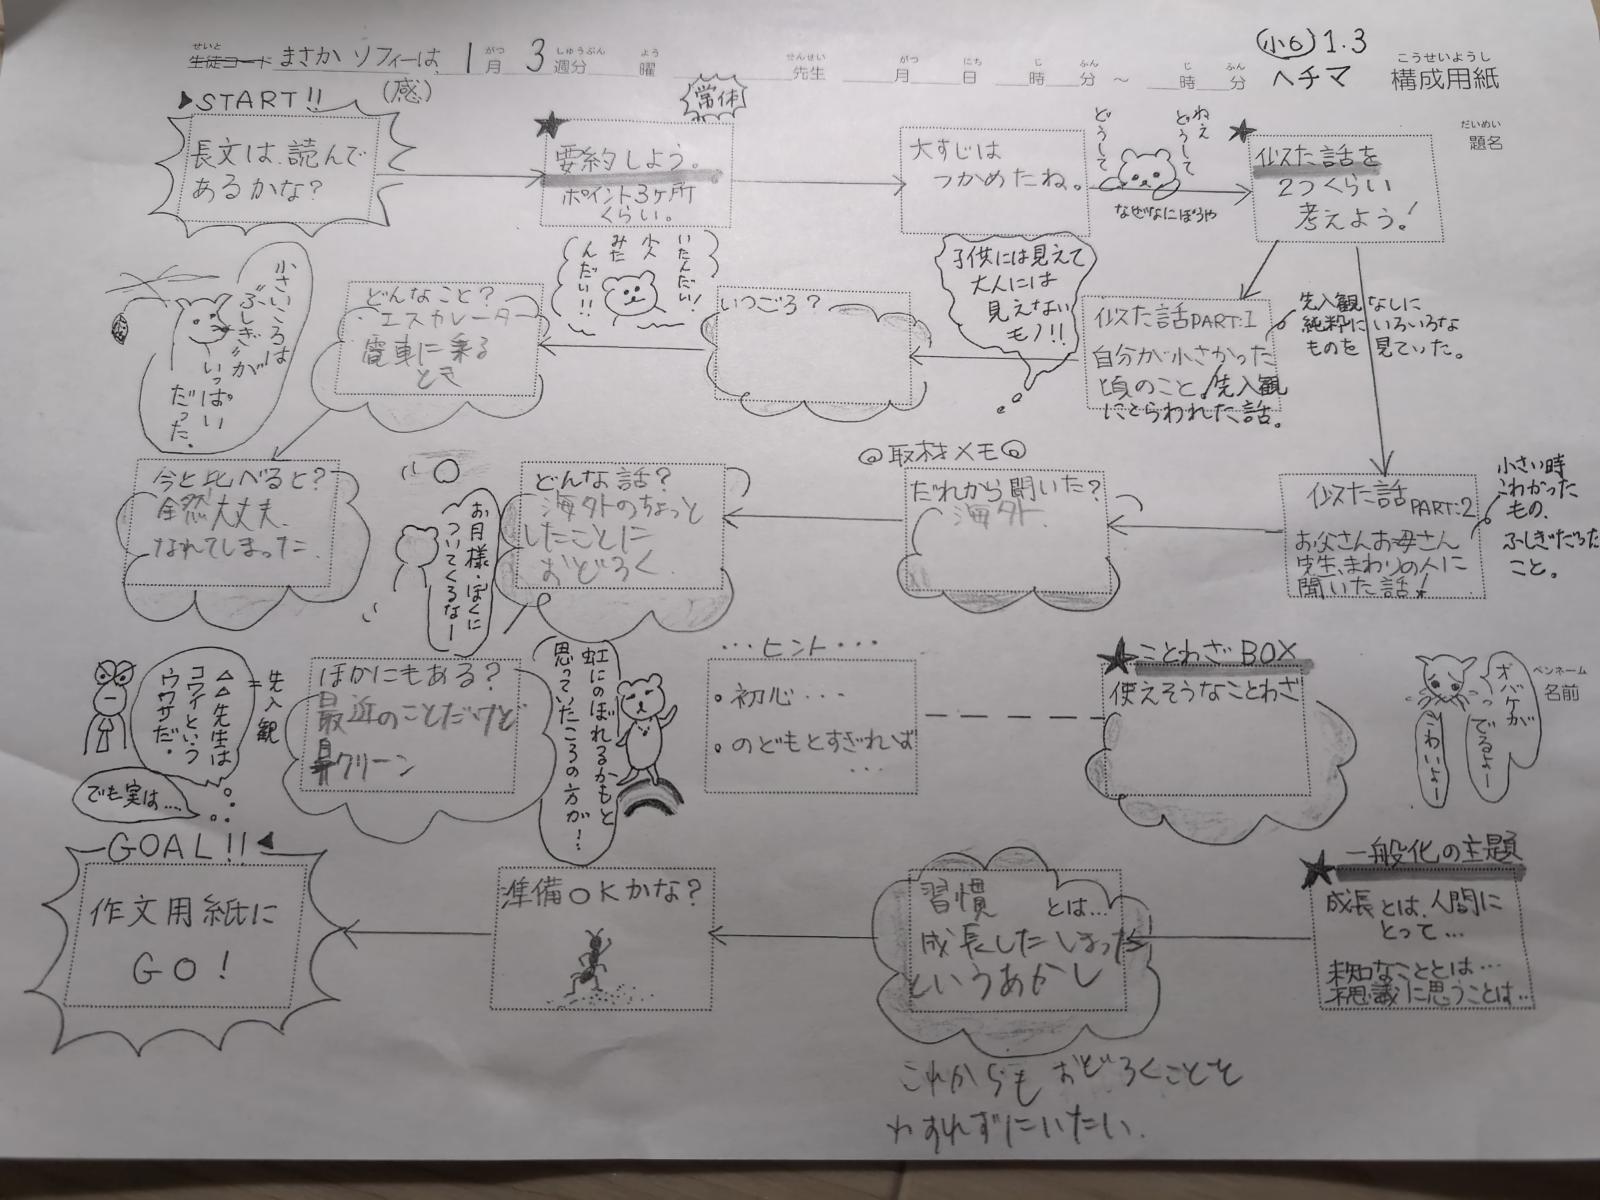 せいと
生徒コード まさか ソフィーは、 1月 3週分 曜 先生 月 日 時 分 ～ 時 分
がつ しゅうぶん よう せんせい がつ にち じ ふん じ ふん
(感)
小6 1.3
ヘチマ
こうせいようし
構成用紙
だいめい
題名
START!!
長文は、読んで
あるかな?
常体
要約しよう。
ポイント3ヶ所
くらい。
大すじは
つかめたね。
ねえ
どうして
どうして
なぜなにぼうや
似た話を
2つくらい
考えよう!
小さいころは
"ふしぎ"が
いっぱい
だった。
どんなこと?
・エスカレーター
電車に乗る
とき
いたんだい!
小人
みた
んだい!!
いつごろ?
子供には見えて
大人には
見えない
モノ!!
似た話PART:1
自分が小さかった
頃のこと、先入観
にとらわれた話。
先入観なしに
純粋にいろいろな
ものを見ていた。
今と比べると?
全然大丈夫、
なれてしまった。
お月様・ぼくに
ついてくるなー
どんな話?
海外のちょっと
したことに
おどろく。
◎取材メモ◎
だれから聞いた?
海外、
似た話PART:2
お父さんお母さん
先生、まわりの人に
聞いた話!
小さい時
こわかった
もの、
ふしぎだった
こと。
先入観
△△先生は
コワイという
ウワサだ。
でも実は…
ほかにもある?
最近のことだけど
鼻クリーン
虹にのぼれるかもと
思っていたころの方が…
…ヒント…
・初心…
・のどもとすぎれば
…
ことわざBOX
使えそうなことわざ
オバケが
でるよー
こわいよー
ペンネーム
名前
GOAL!!
作文用紙に
GO!
準備OKかな?
習慣 とは…
成長したしまった
というあかし
一般化の主題
成長とは、人間に
とって…
未知なこととは…
不思議に思うことは…
これからもおどろくことを
わすれずにいたい。